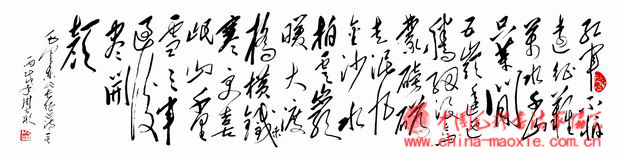 红军不怕
远征難
萬水千山
只等闲
五嶺逶迤
腾细浪乌
蒙磅礴
走泥丸
金沙水
拍雲巖
暖大渡
橋横鐵索
寒更喜
岷山千里
雪三军
过後
尽開
颜
毛泽东七律长征诗一首
丙戌年
www.china-maoxie.com